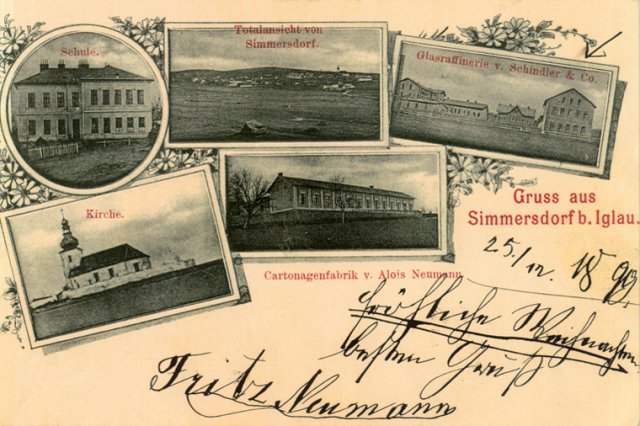 Schule.
Totalansicht von
Simmersdorf.
Glasraffinerie v. Schindler & Co.
Kirche.
Cartonagenfabrik v. Alois Neumann
Gruss aus
Simmersdorf b. Iglau.
25/12. 18
fröhliche Weihnachten
besten Gruß
Fritz Neumann